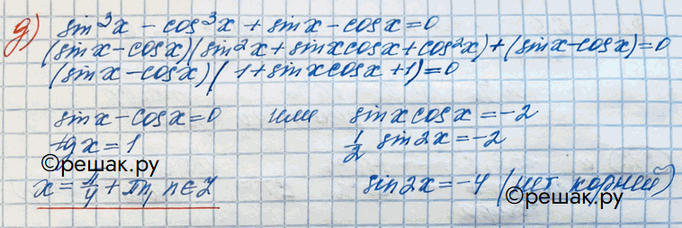 д) sin³x - cos³x + sinx - cosx = 0
(sinx - cosx)(sin²x + sinxcosx + cos²x) + (sinx - cosx) = 0
(sinx - cosx)(1 + sinxcosx + 1) = 0
sinx - cosx = 0 или sinxcosx = -2
tgx = 1 1/2 sin2x = -2
©решак.ру
x = π/4 + πn, n ∈ Z sin2x = -4 (нет корней)
©решак.ру